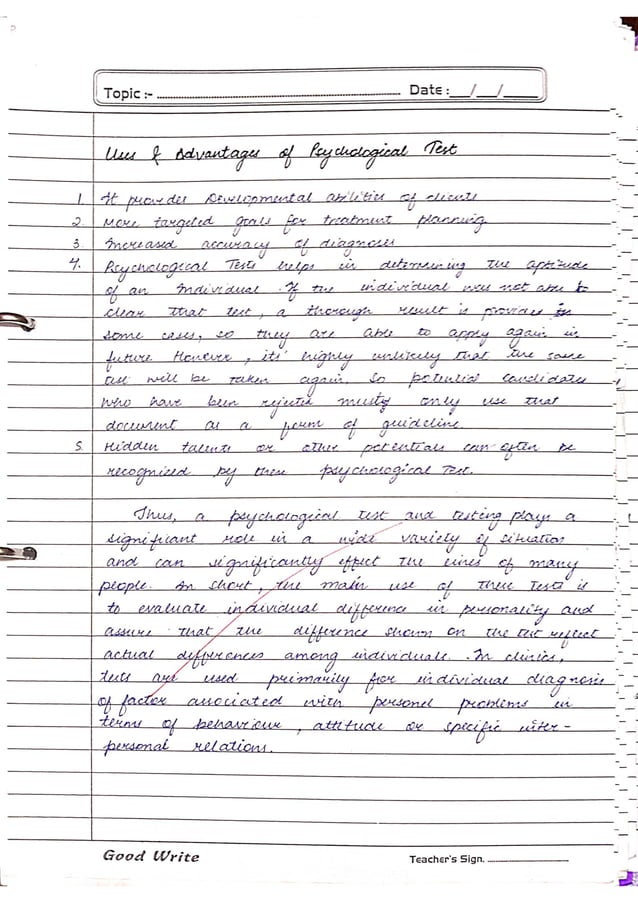 Topic :- Date : / /
Uses & Advantages of Psychological Test
1. It provides Developmental abilities of clients
2. More targeted goals for treatment planning
3. Increased accuracy of diagnoses
4. Psychological Tests helps in determining the aptitude
of an Individual. If the individual was not able to
clear that test, a thorough result is provided in
some cases, so they are able to apply again in
future However, its highly unlikely that the same
test will be taken again, so potential candidates
who have been rejected mostly only use that
document as a form of guideline.
5. Hidden talents or other potentials can often be
recognised by these psychological Test.
Thus, a psychological test and testing plays a
significant role in a wide variety of situation
and can significantly effect the lives of many
people. In short, the main use of these tests is
to evaluate individual difference in personality and
assure that the difference shown on the test reflect
actual differences among individuals. In clinics,
tests are used primarily for individual diagnosis
of factor associated with personal problems in
terms of behaviour, attitude or specific inter-
personal relations.
Good Write Teacher's Sign.